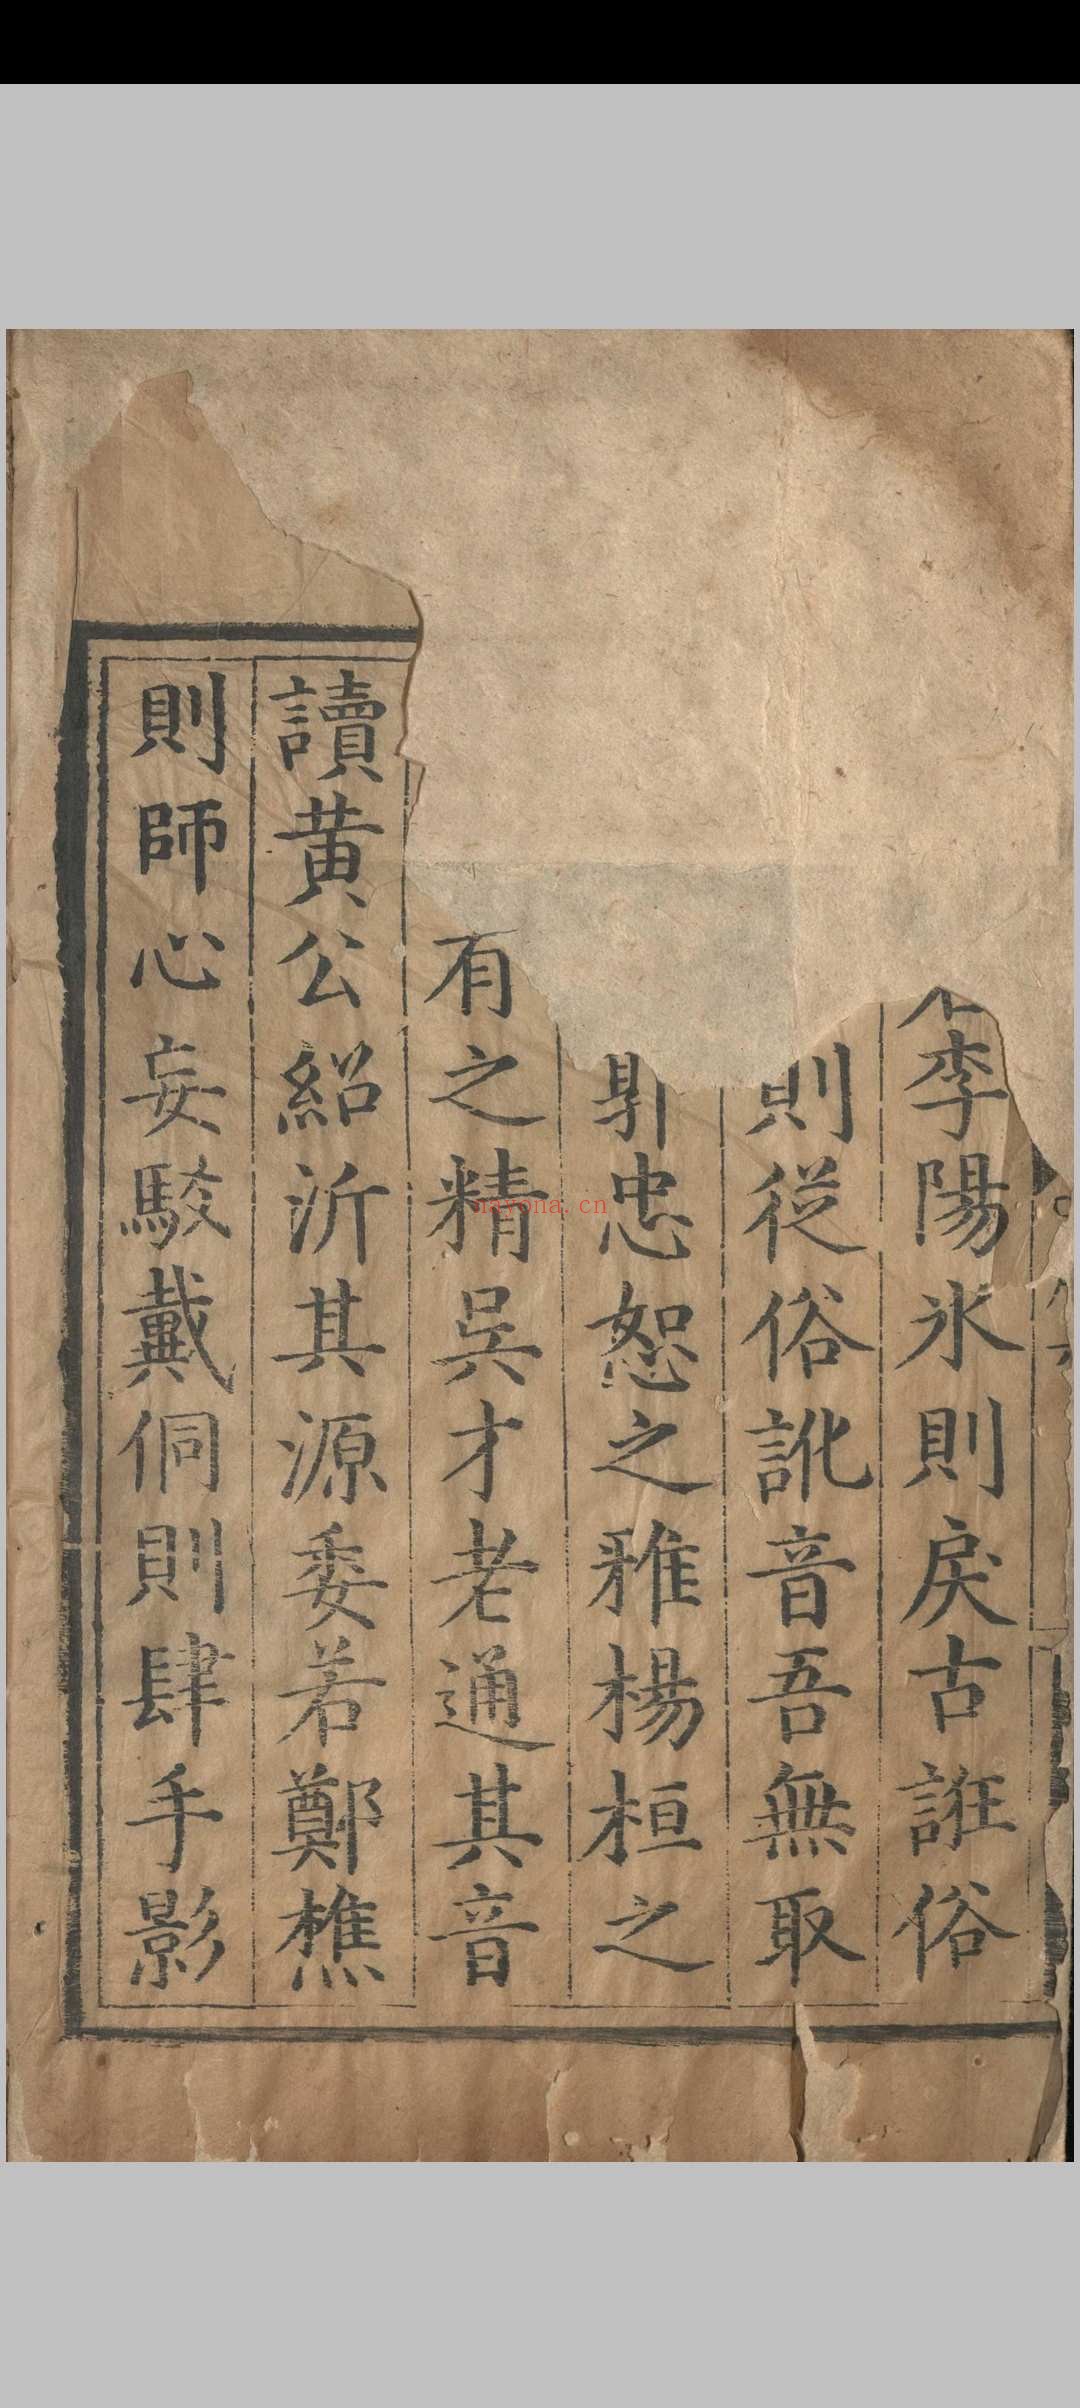 李陽氷則戾古誑俗
則從俗訛音吾無取
郭忠恕之雅楊桓之
有之精吳才老通其音
讀黄公紹泝其源委若鄭樵
則師心妄駁戴侗則肆手影
nayona.cn